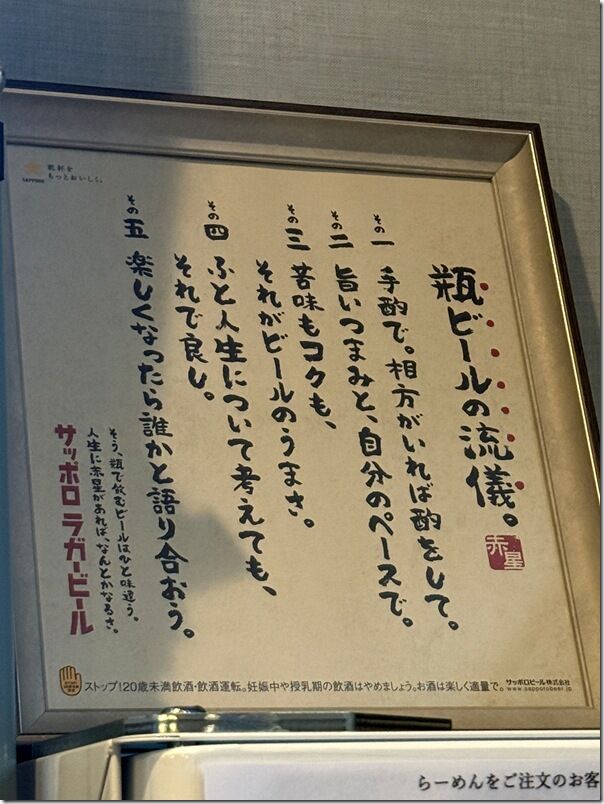 乾杯を
もっとおいしく。
SAPPORO
瓶ビールの流儀。
赤星
その一 手酌で。相方がいれば酌をして。
その二 旨いつまみと、自分のペースで。
その三 苦味もコクも、
それがビールのうまさ。
その四 ふと人生について考えても、
それで良し。
その五 楽しくなったら誰かと語り合おう。
そう、瓶で飲むビールはひと味違う。
人生に赤星があれば、なんとかなるさ。
サッポロ ラガービール
ストップ!20歳未満飲酒・飲酒運転。妊娠中や授乳期の飲酒はやめましょう。お酒は楽しく適量で。
サッポロビール株式会社
www.sapporobeer.jp
らーめんをご注文のお客